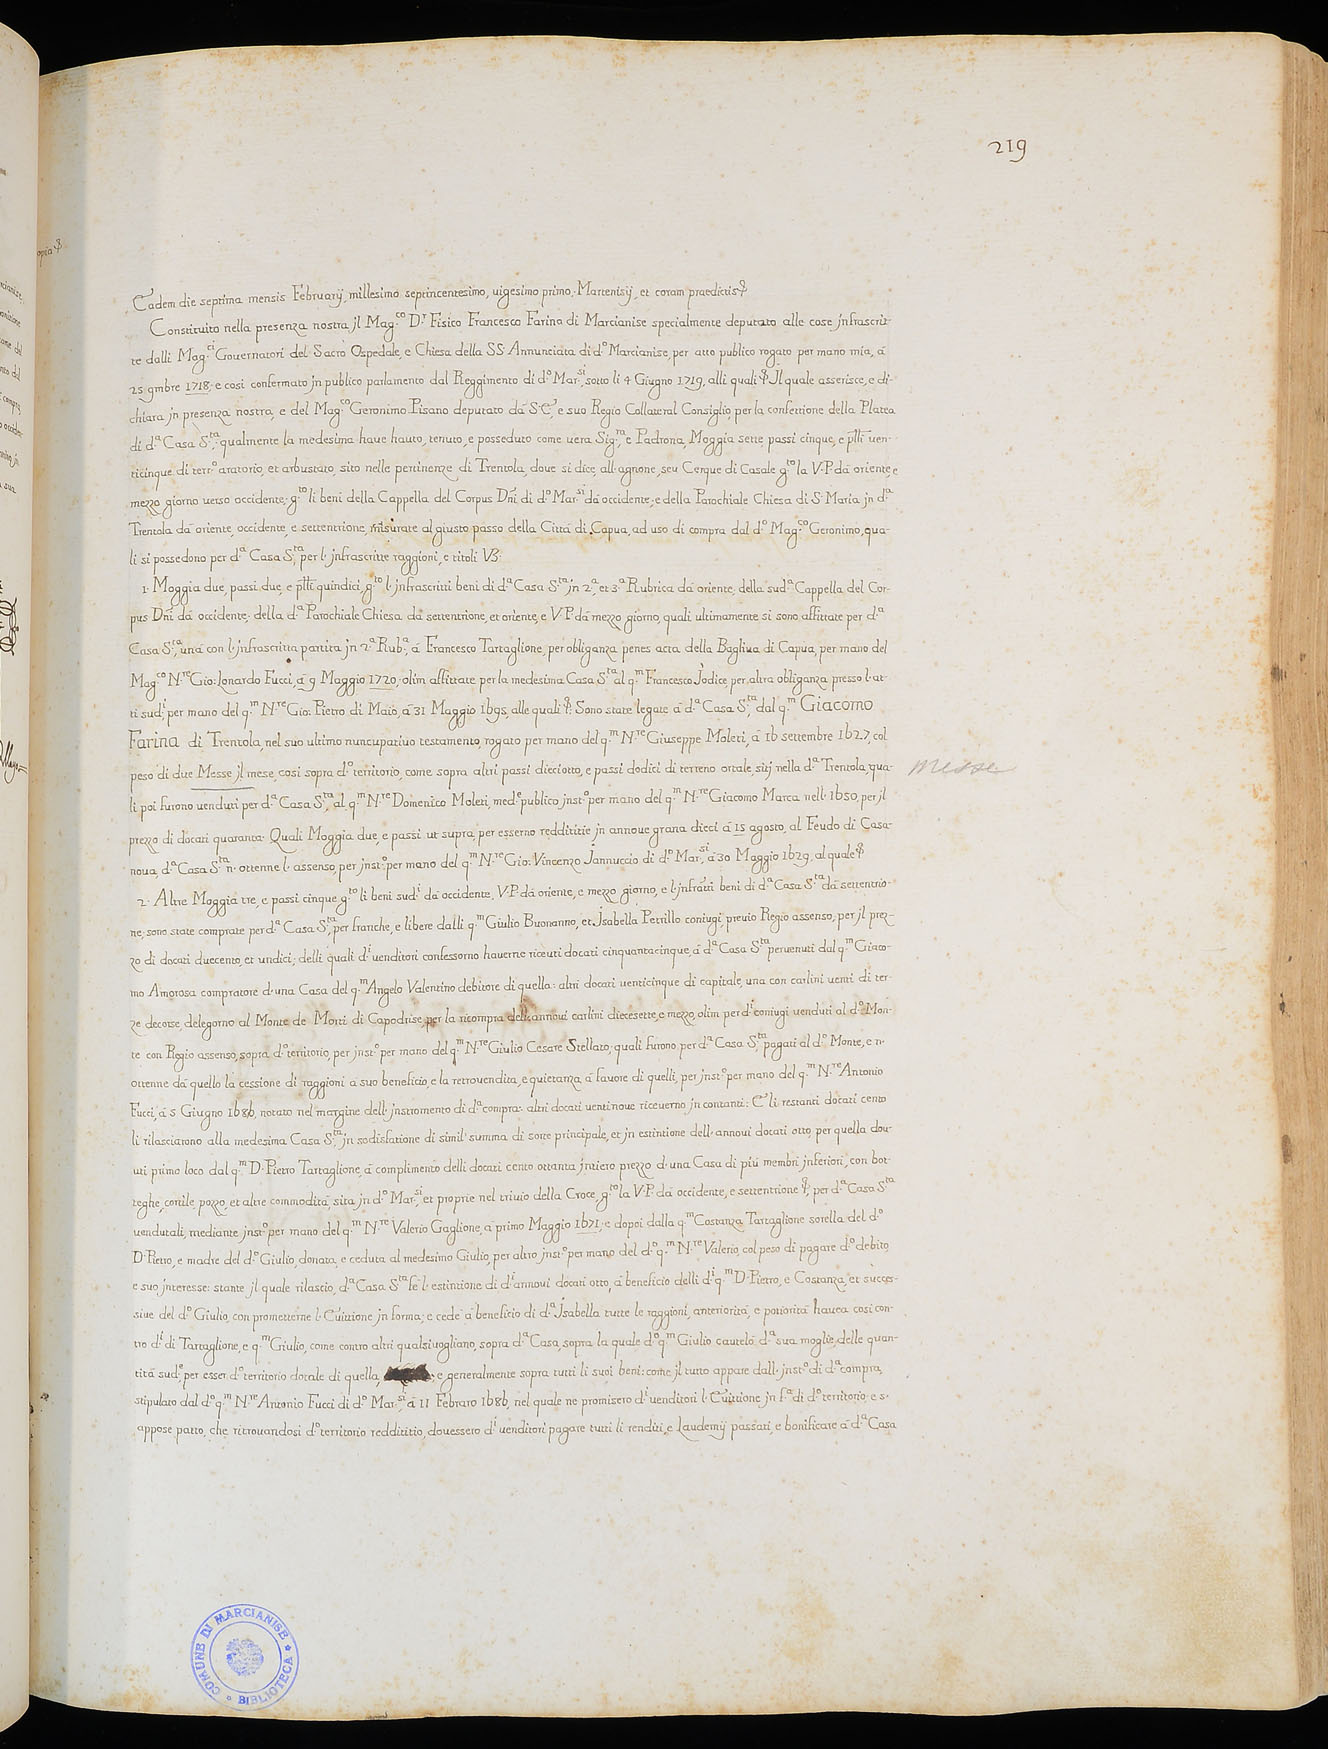 219
Eadem die septima mensis Februarij, millesimo septincentesimo, uigesimo primo, Martenisij, et coram praedictis
Constituito nella presenza nostra jl Mag.co D.r Fisico Francesco Farina di Marcianise specialmente deputato alle cose jnfrascrit-
te dalli Mag.ci Gouernatori del Sacro Ospedale, e Chiesa della SS. Annunciata di d.o Marcianise, per atto publico rogato per mano mia, á
25 9mbre 1718; e cosi confermato jn publico parlamento dal Reggimento di d.o Mar.si, sotto li 4 Giugno 1719, alli quali Jl quale asserisce, e di-
chiara jn presenza nostra, e del Mag.co Geronimo Pisano deputato dá S.E., e suo Regio Collateral Consiglio, per la confettione della Platea
di d.a Casa S.ta, qualmente la medesima haue hauto, tenuto, e posseduto come uera Sig.ra, e Padrona, Moggia sette, passi cinque, e p̃lti uen-
ticinque di terr.o aratorio, et arbustato, sito nelle pertinenze di Trentola, doue si dice, all'agnone, seu Cerque di Casale g.to la V.P. dá oriente, e
mezzo giorno uerso occidente; g.to li beni della Cappella del Corpus Dñi di d.o Mar.si dá occidente; e della Parochiale Chiesa di S. Maria jn d.a
Trentola dá oriente, occidente, e settentrione, misurate al giusto passo della Cittá di Capua, ad uso di compra dal d.o Mag.co Geronimo, qua-
li si possedono per d.a Casa S.ta per l'jnfrascritte raggioni, e titoli V3:
1. Moggia due, passi due, e p̃lti quindici, g.to l'jnfrascritti beni di d.a Casa S.ta jn 2.a, et 3.a Rubrica dá oriente; della sud.a Cappella del Cor-
pus Dñi dá occidente; della d.a Parochiale Chiesa dá settentrione, et oriente, e V.P. dá mezzo giorno, quali ultimamente si sono affittate per d.a
Casa S.ta, uná con l'jnfrascritta partita jn 2.a Rub.a, á Francesco Tartaglione, per obliganza penes acta della Bagliua di Capua, per mano del
Mag.co N.re Gio: Lonardo Fucci, á 9 Maggio 1720; olim affittate per la medesima Casa S.ta al q.m Francesco Jodice per altra obliganza presso l'at-
ti sud.i, per mano del q.m N.re Gio: Pietro di Maio, á 31 Maggio 1695, alle quali Sono state legate á d.a Casa S.ta, dal q.m Giacomo
Farina di Trentola, nel suo ultimo nuncupatiuo testamento, rogato per mano del q.m N.re Giuseppe Moleti, á 16 settembre 1627, col
peso di due Messe jl mese, cosi sopra d.o territorio, come sopra altri passi dieciotto, e passi dodici di terreno ortale, sitj nella d.a Trentola, qua-
messe
li poi furono uenduti per d.a Casa S.ta, al q.m N.re Domenico Moleti, med.e publico jnst.o per mano del q.m N.re Giacomo Marca nell'1650, per jl
prezzo di docati quaranta. Quali Moggia due, e passi ut supra, per esserno reddititie jn annoue grana dieci á 15 agosto, al Feudo di Casa-
noua, d.a Casa S.ta n'ottenne l'assenso, per jnst.o per mano del q.m N.re Gio: Vincenzo Jannuccio di d.o Mar.si, á 30 Maggio 1629, al quale
2. Altre Moggia tre, e passi cinque g.to li beni sud.i dá occidente, V.P. dá oriente, e mezzo giorno, e l'jnfratti beni di d.a Casa S.ta dá settentrio-
ne; sono state comprate per d.a Casa S.ta, per franche, e libere dalli q.m Giulio Buonanno, et Jsabella Petrillo coniugi, preuio Regio assenso, per jl prez-
zo di docati duecento, et undici; delli quali d.i uenditori confessorno hauerne riceuti docati cinquantacinque, á d.a Casa S.ta peruenuti dal q.m Giaco-
mo Amorosa compratore d'una Casa del q.m Angelo Valentino debitore di quella: altri docati uenticinque di capitale, una con carlini uenti di ter-
ze decorse, delegorno al Monte de Morti di Capodrise, per la ricompra dell'annoui carlini diecesette, e mezzo, olim per d.i coniugi uenduti al d.o Mon-
te con Regio assenso, sopra d.o territorio, per jnst.o per mano del q.m N.re Giulio Cesare Stellato; quali furono per d.a Casa S.ta pagati al d.o Monte, e n'
ottenne dá quello la cessione di raggioni á suo beneficio, e la retrouendita, e quietanza á fauore di quelli, per jnst.o per mano del q.m N.re Antonio
Fucci, á 5 Giugno 1686, notato nel margine dell'jnstromento di d.a compra: altri docati uentinoue riceuerno jn contanti: E' li restanti docati cento
li rilasciarono alla medesima Casa S.ta, jn sodisfatione di simil'summa di sorte principale, et jn estintione dell'annoui docati otto, per quella dou-
uti primo loco dal q.m D. Pietro Tartaglione, á complimento delli docati cento ottanta jntiero prezzo d'una Casa di piú membri jnferiori, con bot-
teghe, cortile, pozzo, et altre commoditá, sita jn d.o Mar.si, et proprie nel triuio della Croce, g.to la V.P. dá occidente, e settentrione, per d.a Casa S.ta
uendutali, mediante jnst.o per mano del q.m N.re Valerio Gaglione, a primo Maggio 1671; e dopoi dalla q.m Costanza Tartaglione sorella del d.o
D. Pietro, e madre del d.o Giulio, donata, e ceduta al medesimo Giulio, per altro jnst.o per mano del d.o q.m N.re Valerio, col peso di pagare d.o debito,
e suo jnteresse: stante jl quale rilascio, d.a Casa S.ta fé l'estintione di d.i annoui docati otto, á beneficio delli d.i q.m D. Pietro, e Costanza, et succes-
siue del d.o Giulio, con prometterne l'Euittione jn forma; e cedé á beneficio di d.a Jsabella tutte le raggioni, anterioritá, e potioritá hauea cosi con-
tro d.i di Tartaglione, e q.m Giulio, come contro altri qualsiuogliano, sopra d.a Casa, sopra la quale d.o q.m Giulio cauteló d.a sua moglie, delle quan-
titá sud.e, per esser d.o territorio dotale di quella, e generalmente sopra tutti li suoi beni: come jl tutto appare dall'jnst.o di d.a compra,
stipulato dal d.o q.m N.re Antonio Fucci di d.o Mar.si, á 11 Febraro 1686, nel quale ne promisero d.i uenditori l'Euittione jn f.a di d.o territorio, e s'
appose patto, che ritrouandosi d.o territorio reddititio, douessero d.i uenditori pagare tutti li renditi, e Laudemij passati, e bonificare á d.a Casa
COMUNE DI MARCIANISE * BIBLIOTECA *